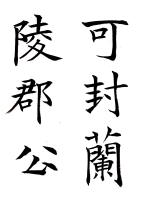 可封蘭
陵郡公